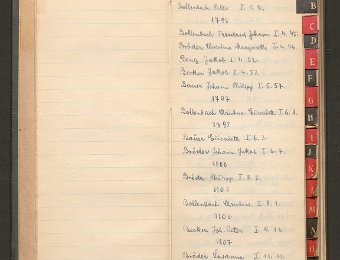 Bollenbach I. 1. 2.
1795
Bollenbach Friedrich Johann I. 4. 45.
Bröder Christine I. 4. 46.
Jakob I. 4. 52.
Becker Jakob I. 4. 53.
Bauer Johann Philipp I. 5. 57.
1797
Bollenbach Christine Elisabeth I. 6. 1.
1798
Bauer Elisabeth I. 6. 3.
Bröder Johann Jakob I. 6. 7.
1800
Bröder Philipp I. 8. 2.
Bollenbach Christine I. 8. 1.
1806
Becker Joh. Peter I. 9. 12.
1807
Bröder Susanna I.
B
C
D
E
F
G
H
I
J
K
L
M
N
O